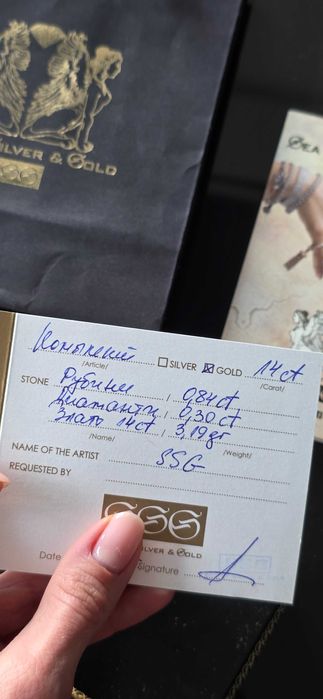 SILVER & GOLD
SSS
SEA
SILVER
GOLD
14ct
/Article/
/Carat/
STONE
Рубини / 0,84ct
Диаманти / 0,30ct
Злато 14ct / 3,19gr
/Name/
/Weight/
NAME OF THE ARTIST
SSG
REQUESTED BY
SSS
SILVER & GOLD
Date
Signature